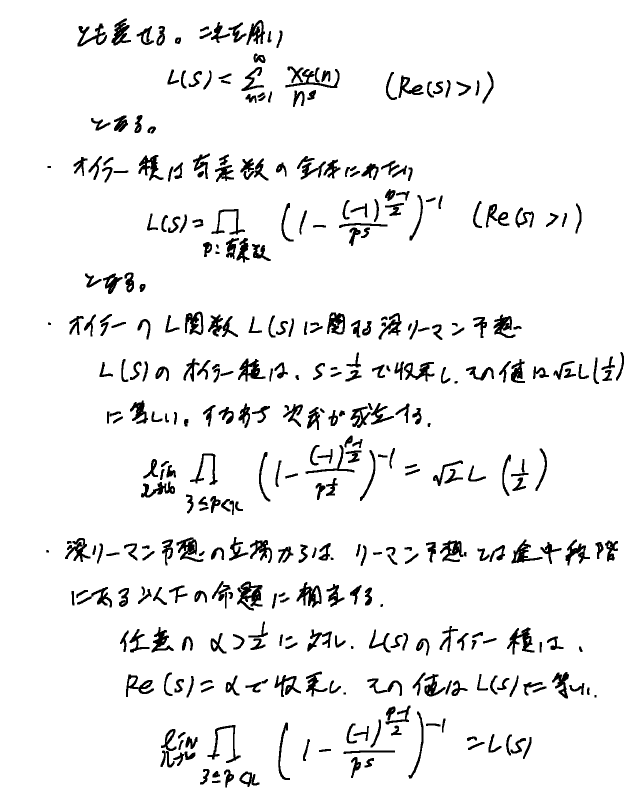 とも表せる。これを用い
L(S) = ∑_{n=1}^{∞} χ4(n)/n^s (Re(s)>1)
となる。
・オイラー積は奇素数の全体にわたり
L(S) = ∏_{p:奇素数} (1 - (-1)^{(p-1)/2}/p^s)^{-1} (Re(s)>1)
となる。
・オイラーのL関数 L(s)に関する深リーマン予想
L(S)のオイラー積は、S=1/2 で収束し、その値は√2L(1/2)
に等しい。すなわち次式が成立する.
lim_{x→∞} ∏_{3≤p<x} (1 - (-1)^{(p-1)/2}/p^{1/2})^{-1} = √2 L (1/2)
・深リーマン予想の立場からは、リーマン予想とは途中段階
にある以下の命題に相当する.
任意の α>1/2 に対し、L(s)のオイラー積は、
Re(s)=α で収束し、その値は L(s)に等しい.
lim_{x→∞} ∏_{3≤p<x} (1 - (-1)^{(p-1)/2}/p^s)^{-1} = L(s)